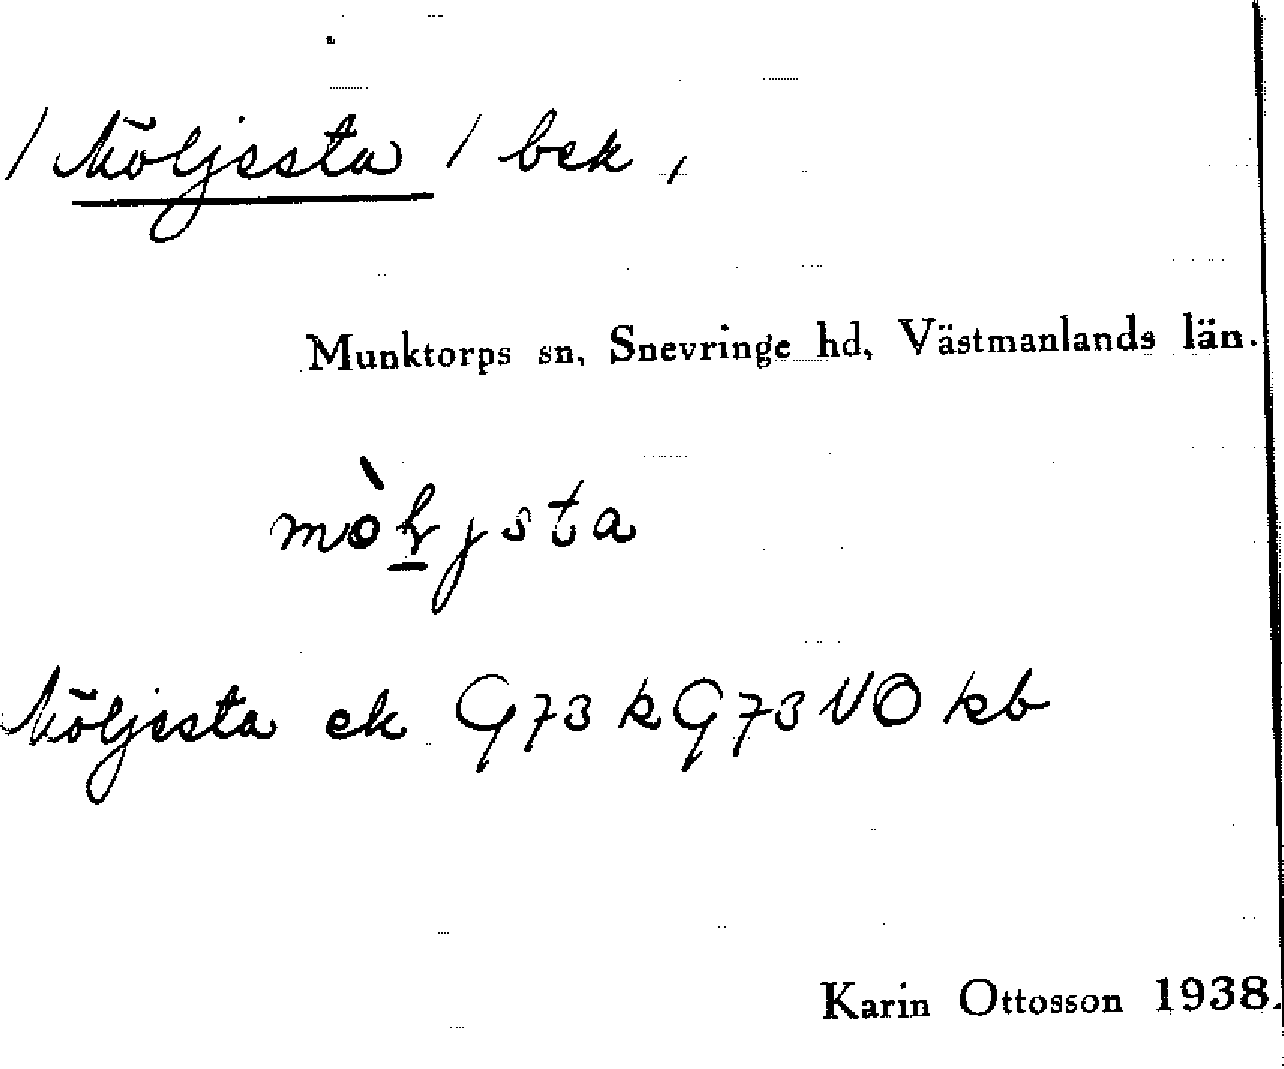 / Möljesta / bek,
Munktorps sn, Snevringe hd, Västmanlands län.
Möljesta ek G73 k G73 NO kb
Karin Ottosson 1938.